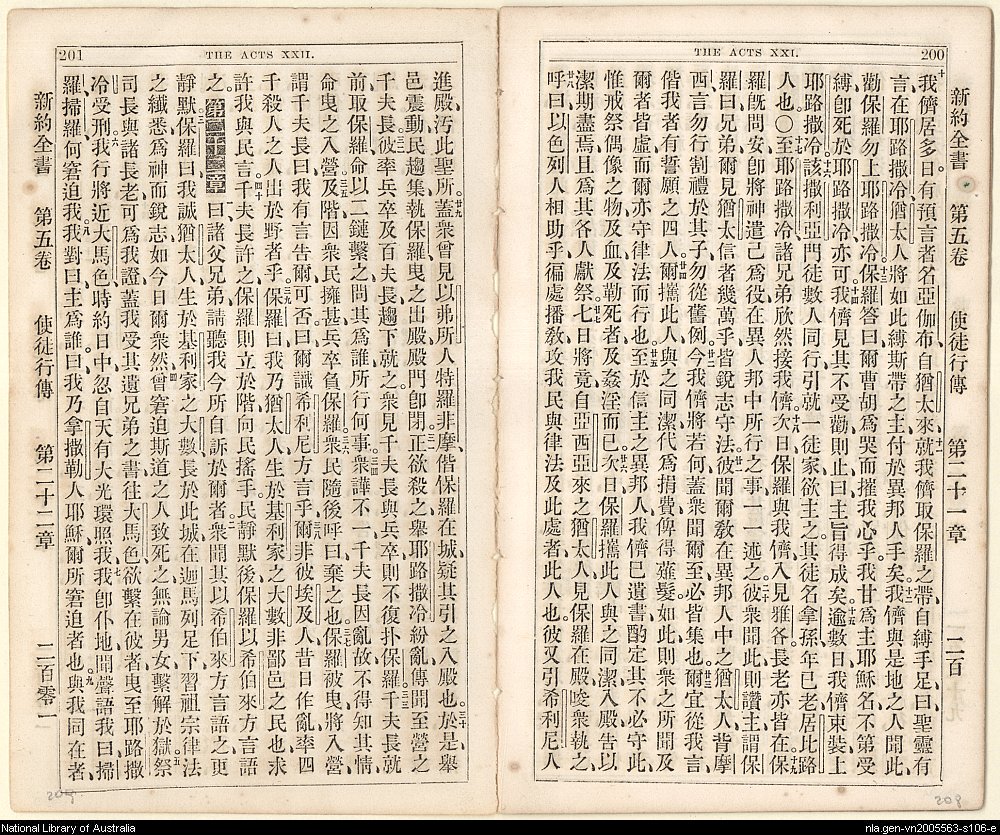 THE ACTS XXI. 200
新約全書 第五卷 使徒行傳 第二十一章 二百
十我儕居多日有預言者名亞伽布自猶太來十一就我儕取保羅之帶自縛手足曰聖靈有
言在耶路撒冷猶太人將如此縛斯帶之主付於異邦人手矣十二我儕與是地之人聞此
勸保羅勿上耶路撒冷十三保羅答曰爾曹胡爲哭而摧我心乎我甘爲主耶穌名不第受
縛卽死於耶路撒冷亦可十四我儕見其不受勸則止曰主旨得成矣十五逾數日我儕束裝上
耶路撒冷十六該撒利亞門徒數人同行引就一徒家欲主之其徒名拿孫年已老居比路
人也〇十七至耶路撒冷諸兄弟欣然接我儕十八次日保羅與我儕入見雅各長老亦皆在十九保
羅旣問安卽將神遣己爲役在異人邦中所行之事一一述之二十彼衆聞此則讚主謂保
羅曰兄弟爾見猶太信者幾萬乎皆銳志守法廿一彼聞爾敎在異邦人中之猶太人背摩
西言勿行割禮於其子勿從舊例廿二今我儕將若何蓋衆聞爾至必皆集也廿三爾宜從我言
偕我者有誓願之四人廿四爾攜此人與之同潔代爲捐費俾得薙髮如此則衆之所聞及
爾者皆虛而爾亦守律法而行也廿五至於信主之異邦人我儕已遺書酌定其不必守此
惟戒祭偶像之物及血及勒死者及姦淫而已廿六次日保羅攜此人與之同潔入殿告以
潔期盡焉且爲其各人獻祭廿七七日將竟自亞西亞來之猶太人見保羅在殿唆衆執之
廿八呼曰以色列人相助乎徧處播敎攻我民與律法及此處者此人也彼又引希利尼人
201 THE ACTS XXII.
進殿汚此聖所廿九蓋衆曾見以弗所人特羅非摩偕保羅在城疑其引之入殿也三十於是舉
邑震動民趨集執保羅曳之出殿殿門卽閉三一正欲殺之舉耶路撒冷紛亂傳聞至營之
千夫長三二彼率兵卒及百夫長趨下就之衆見千夫長與兵卒則不復扑保羅三三千夫長就
前取保羅命以二鏈繫之問其爲誰所行何事三四衆譁不一千夫長因亂故不得知其情
命曳之入營三五及階因衆民擁甚兵卒負保羅三六衆民隨後呼曰棄之也三七保羅被曳將入營
謂千夫長曰我有言告爾可否曰爾識希利尼方言乎三八爾非彼埃及人昔日作亂率四
千殺人之人出於野者乎三九保羅曰我乃猶太人生於基利家之大數非鄙邑之民也求
許我與民言四十千夫長許之保羅則立於階向民搖手民靜默後保羅以希伯來方言語
之第二十二章一曰諸父兄弟請聽我今所自訴於爾者二衆聞其以希伯來方言語之更
靜默三保羅曰我誠猶太人生於基利家之大數長於此城在迦馬列足下習祖宗律法
之纖悉爲神而銳志如今日爾衆然四曾窘迫斯道之人致死之無論男女繫解於獄五祭
司長與諸長老可爲我證蓋我受其遺兄弟之書往大馬色欲繫在彼者曳至耶路撒
冷受刑六我行將近大馬色時約日中忽自天有大光環照我七我卽仆地聞聲語我曰掃
羅掃羅何窘迫我八我對曰主爲誰曰我乃拿撒勒人耶穌爾所窘迫者也九與我同在者
新約全書 第五卷 使徒行傳 第二十二章 二百零一
National Library of Australia
nla.gen-vn2005563-s106-e